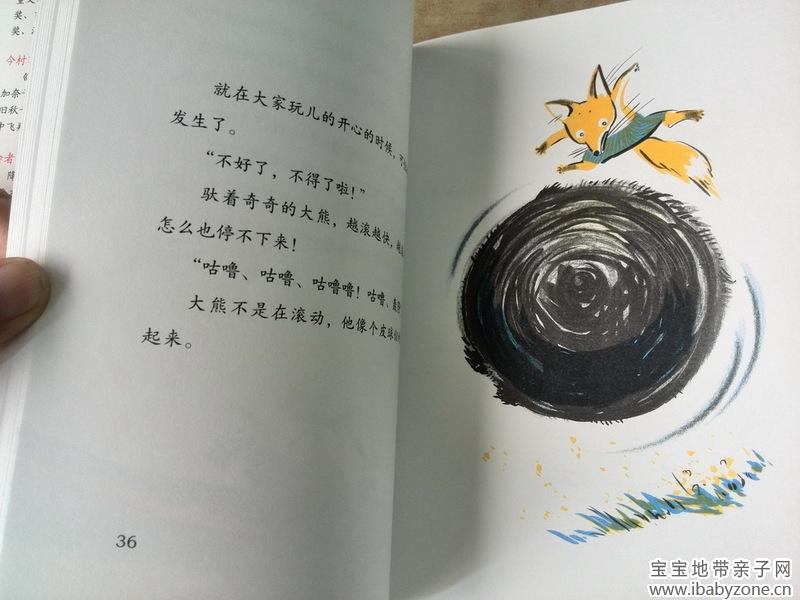 奖、
奖、
今村
《
加奈
旧秋
中飞
绘者
降
就在大家玩儿的开心的时候，
发生了。
“不好了，不得了啦！”
驮着奇奇的大熊，越滚越快，越
怎么也停不下来！
“咕噜、咕噜、咕噜噜！咕噜、
大熊不是在滚动，他像个皮球
起来。
36
宝宝地带亲子网
www.ibabyzone.cn